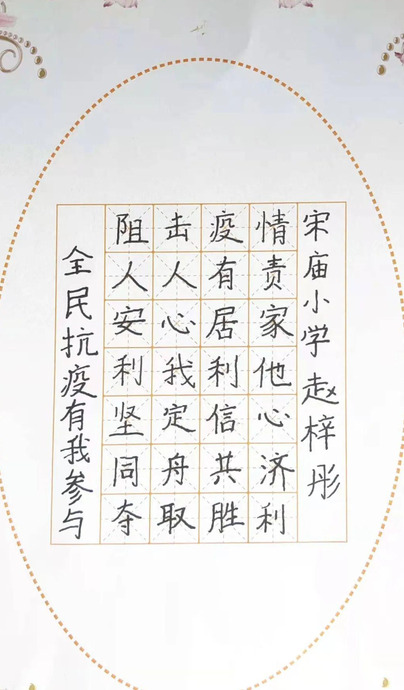 全民抗疫有我参与
阻击疫情
人人有责
安心居家
利我利他
坚定信心
同舟共济
夺取胜利
宋庙小学 赵梓彤